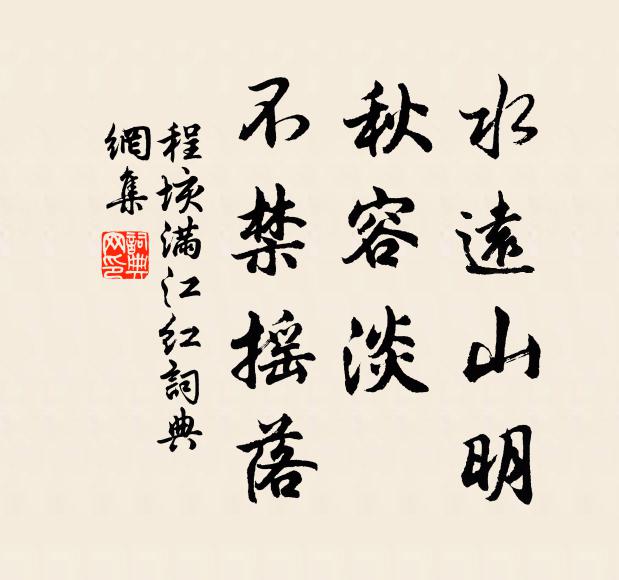 水遠山明
秋容淡
不禁摇落
程垓满江红詞典
網集
詞典
网印